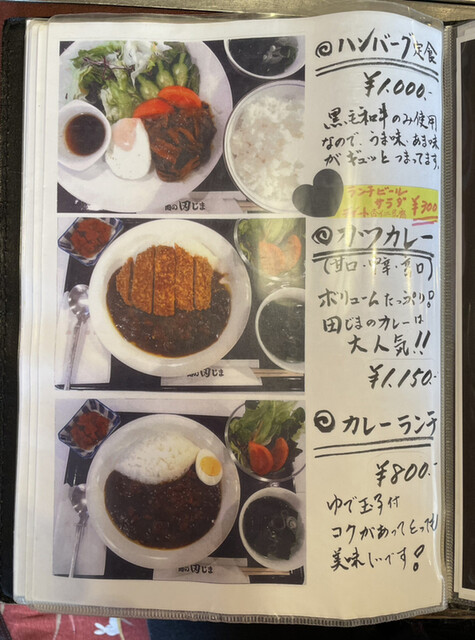 ハンバーグ定食
¥1.000.-
黒毛和牛のみ使用
なので、うま味、あま味
がギュッとつまってます。
ランチビール
サラダ
¥300
カツカレー
(甘口・中辛・辛口)
ボリュームたっぷり!
田じまのカレーは
大人気!!
¥1.150.-
カレーランチ
¥800.-
ゆで玉子付
コクがあってとっても
美味しいです!
田じま
田じま
田じま